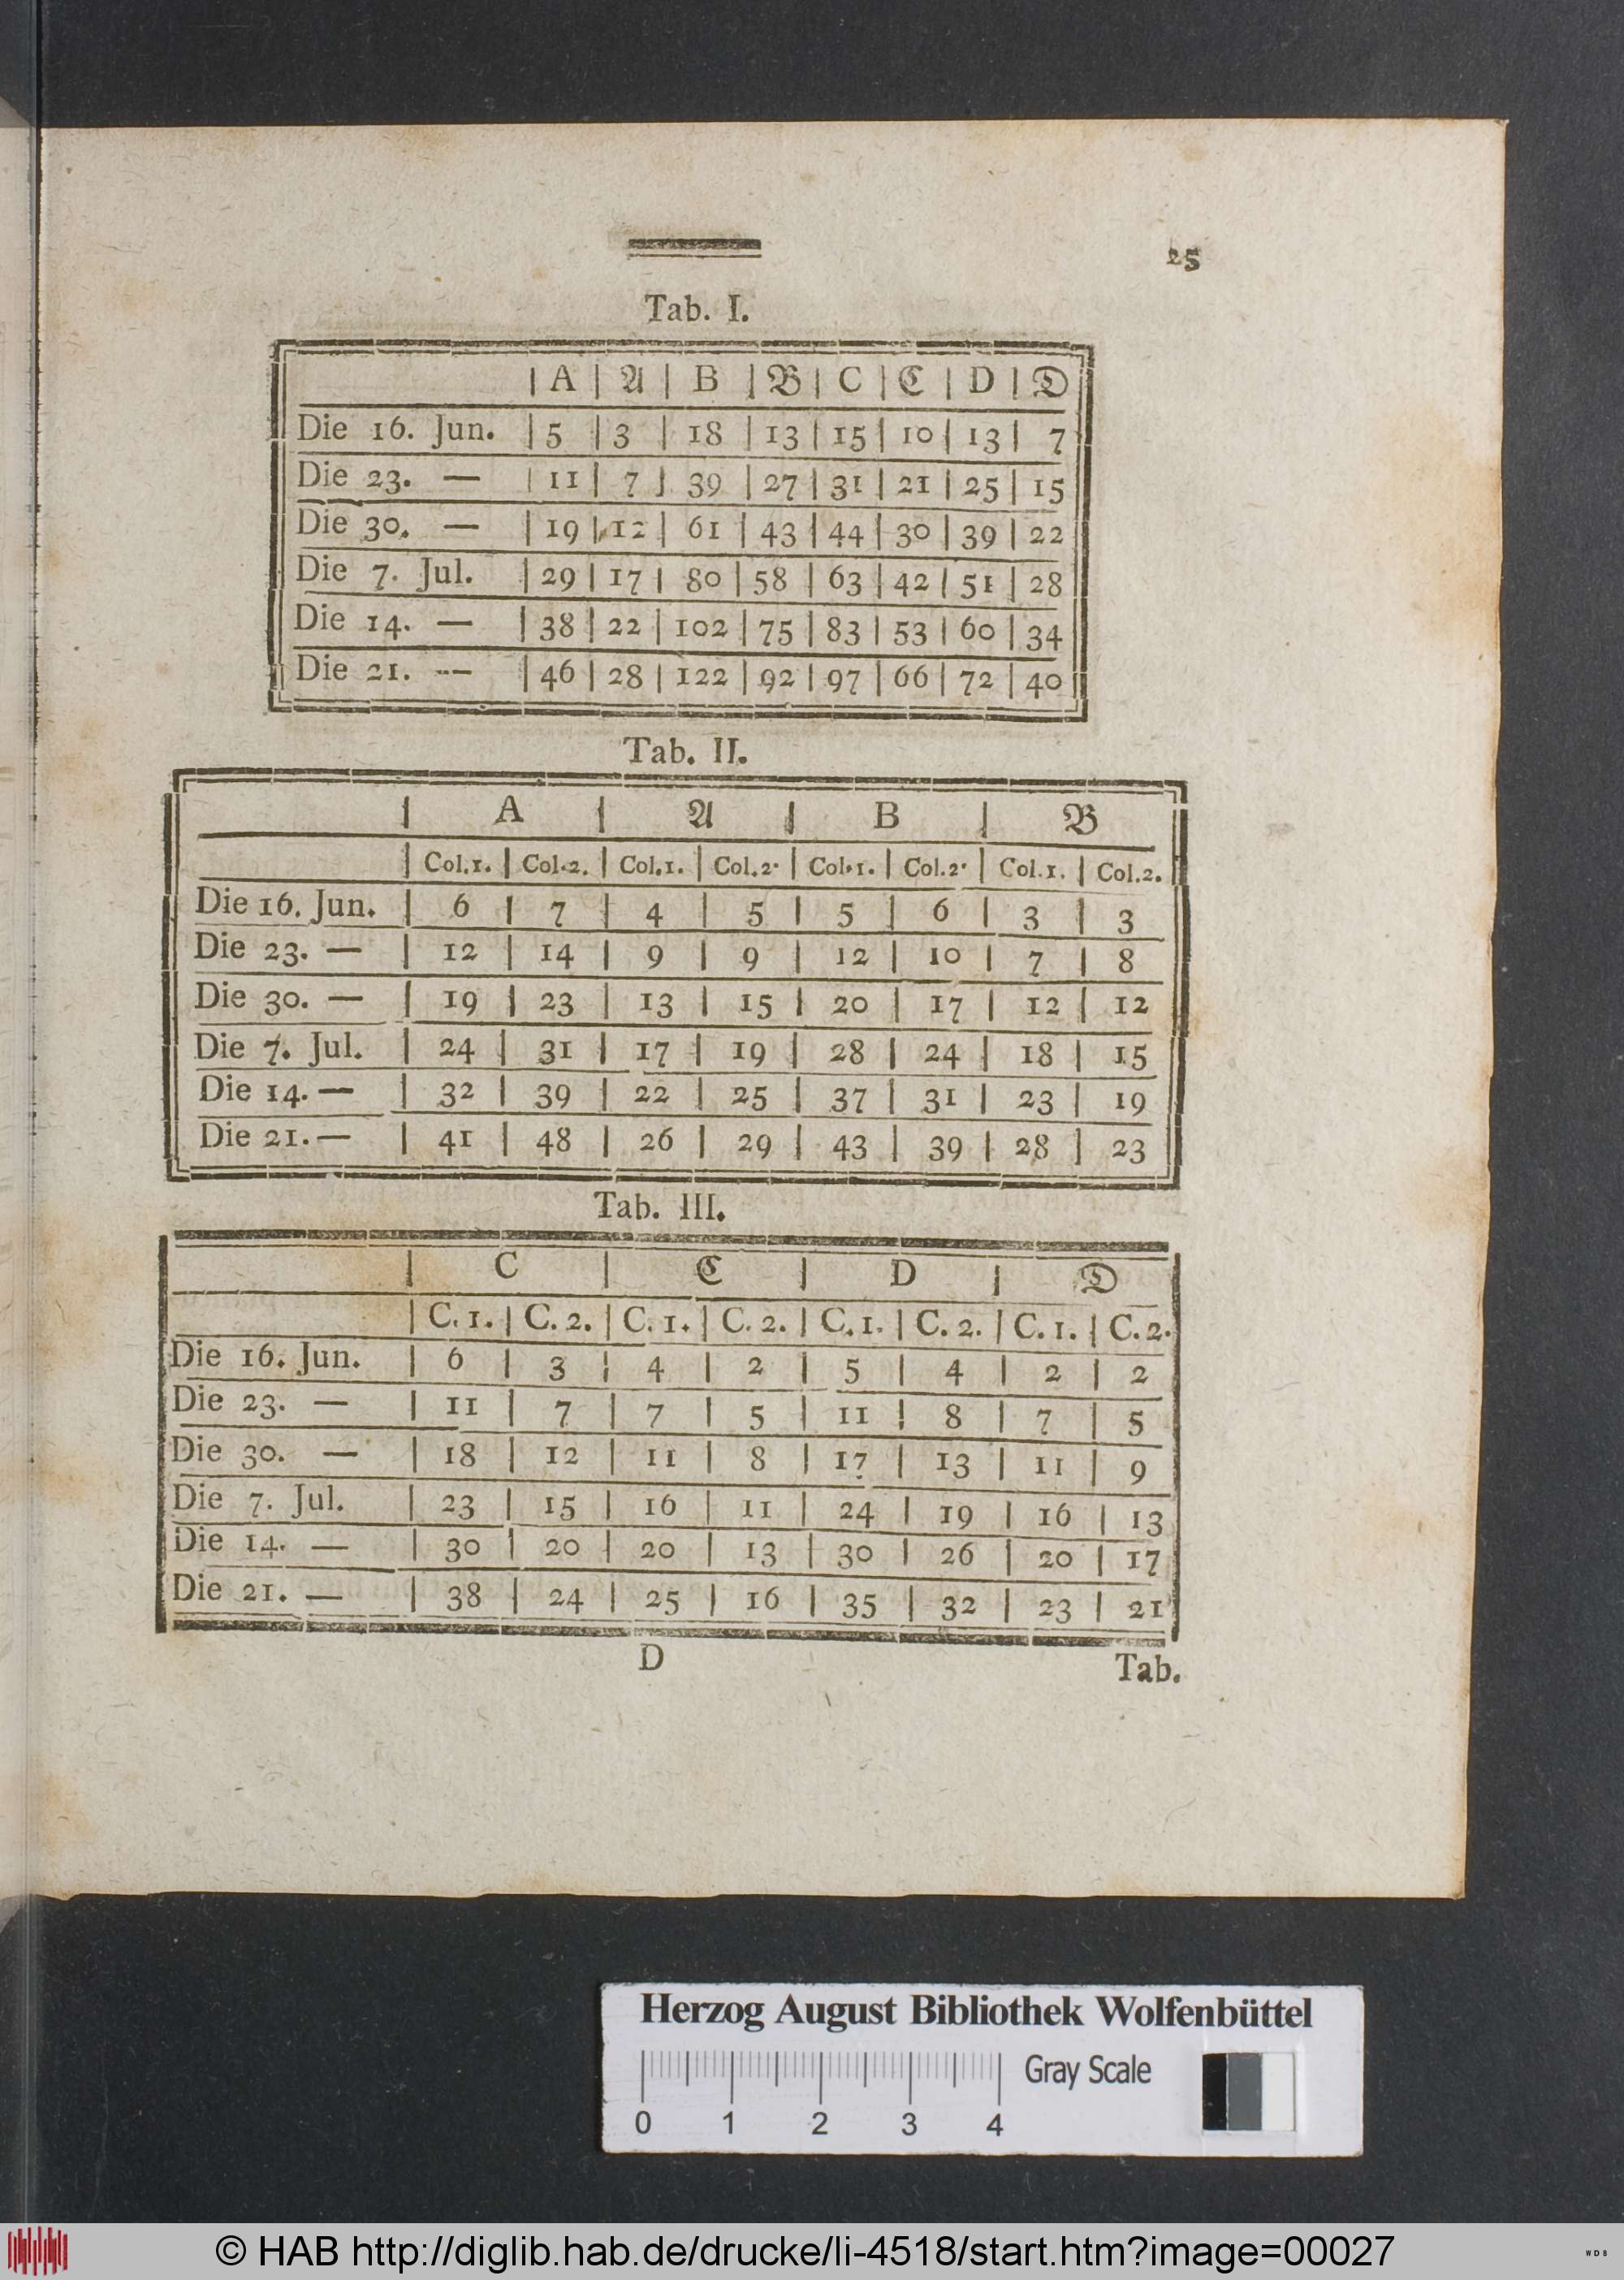 25
Tab. I.
| A | 𝔄 | B | 𝔅 | C | ℭ | D | 𝔇
Die 16. Jun. | 5 | 3 | 18 | 13 | 15 | 10 | 13 | 7
Die 23. — | 11 | 7 | 39 | 27 | 31 | 21 | 25 | 15
Die 30. — | 19 | 12 | 61 | 43 | 44 | 30 | 39 | 22
Die 7. Jul. | 29 | 17 | 80 | 58 | 63 | 42 | 51 | 28
Die 14. — | 38 | 22 | 102 | 75 | 83 | 53 | 60 | 34
Die 21. — | 46 | 28 | 122 | 92 | 97 | 66 | 72 | 40
Tab. II.
| A | 𝔄 | B | 𝔅
| Col.1. | Col.2. | Col.1. | Col.2. | Col.1. | Col.2. | Col.1. | Col.2.
Die 16. Jun. | 6 | 7 | 4 | 5 | 5 | 6 | 3 | 3
Die 23. — | 12 | 14 | 9 | 9 | 12 | 10 | 7 | 8
Die 30. — | 19 | 23 | 13 | 15 | 20 | 17 | 12 | 12
Die 7. Jul. | 24 | 31 | 17 | 19 | 28 | 24 | 18 | 15
Die 14. — | 32 | 39 | 22 | 25 | 37 | 31 | 23 | 19
Die 21. — | 41 | 48 | 26 | 29 | 43 | 39 | 28 | 23
Tab. III.
| C | ℭ | D | 𝔇
| C. 1. | C. 2. | C. 1. | C. 2. | C. 1. | C. 2. | C. 1. | C. 2.
Die 16. Jun. | 6 | 3 | 4 | 2 | 5 | 4 | 2 | 2
Die 23. — | 11 | 7 | 7 | 5 | 11 | 8 | 7 | 5
Die 30. — | 18 | 12 | 11 | 8 | 17 | 13 | 11 | 9
Die 7. Jul. | 23 | 15 | 16 | 11 | 24 | 19 | 16 | 13
Die 14. — | 30 | 20 | 20 | 13 | 30 | 26 | 20 | 17
Die 21. — | 38 | 24 | 25 | 16 | 35 | 32 | 23 | 21
D Tab.
Herzog August Bibliothek Wolfenbüttel
Gray Scale
0 1 2 3 4
© HAB http://diglib.hab.de/drucke/li-4518/start.htm?image=00027
WDB